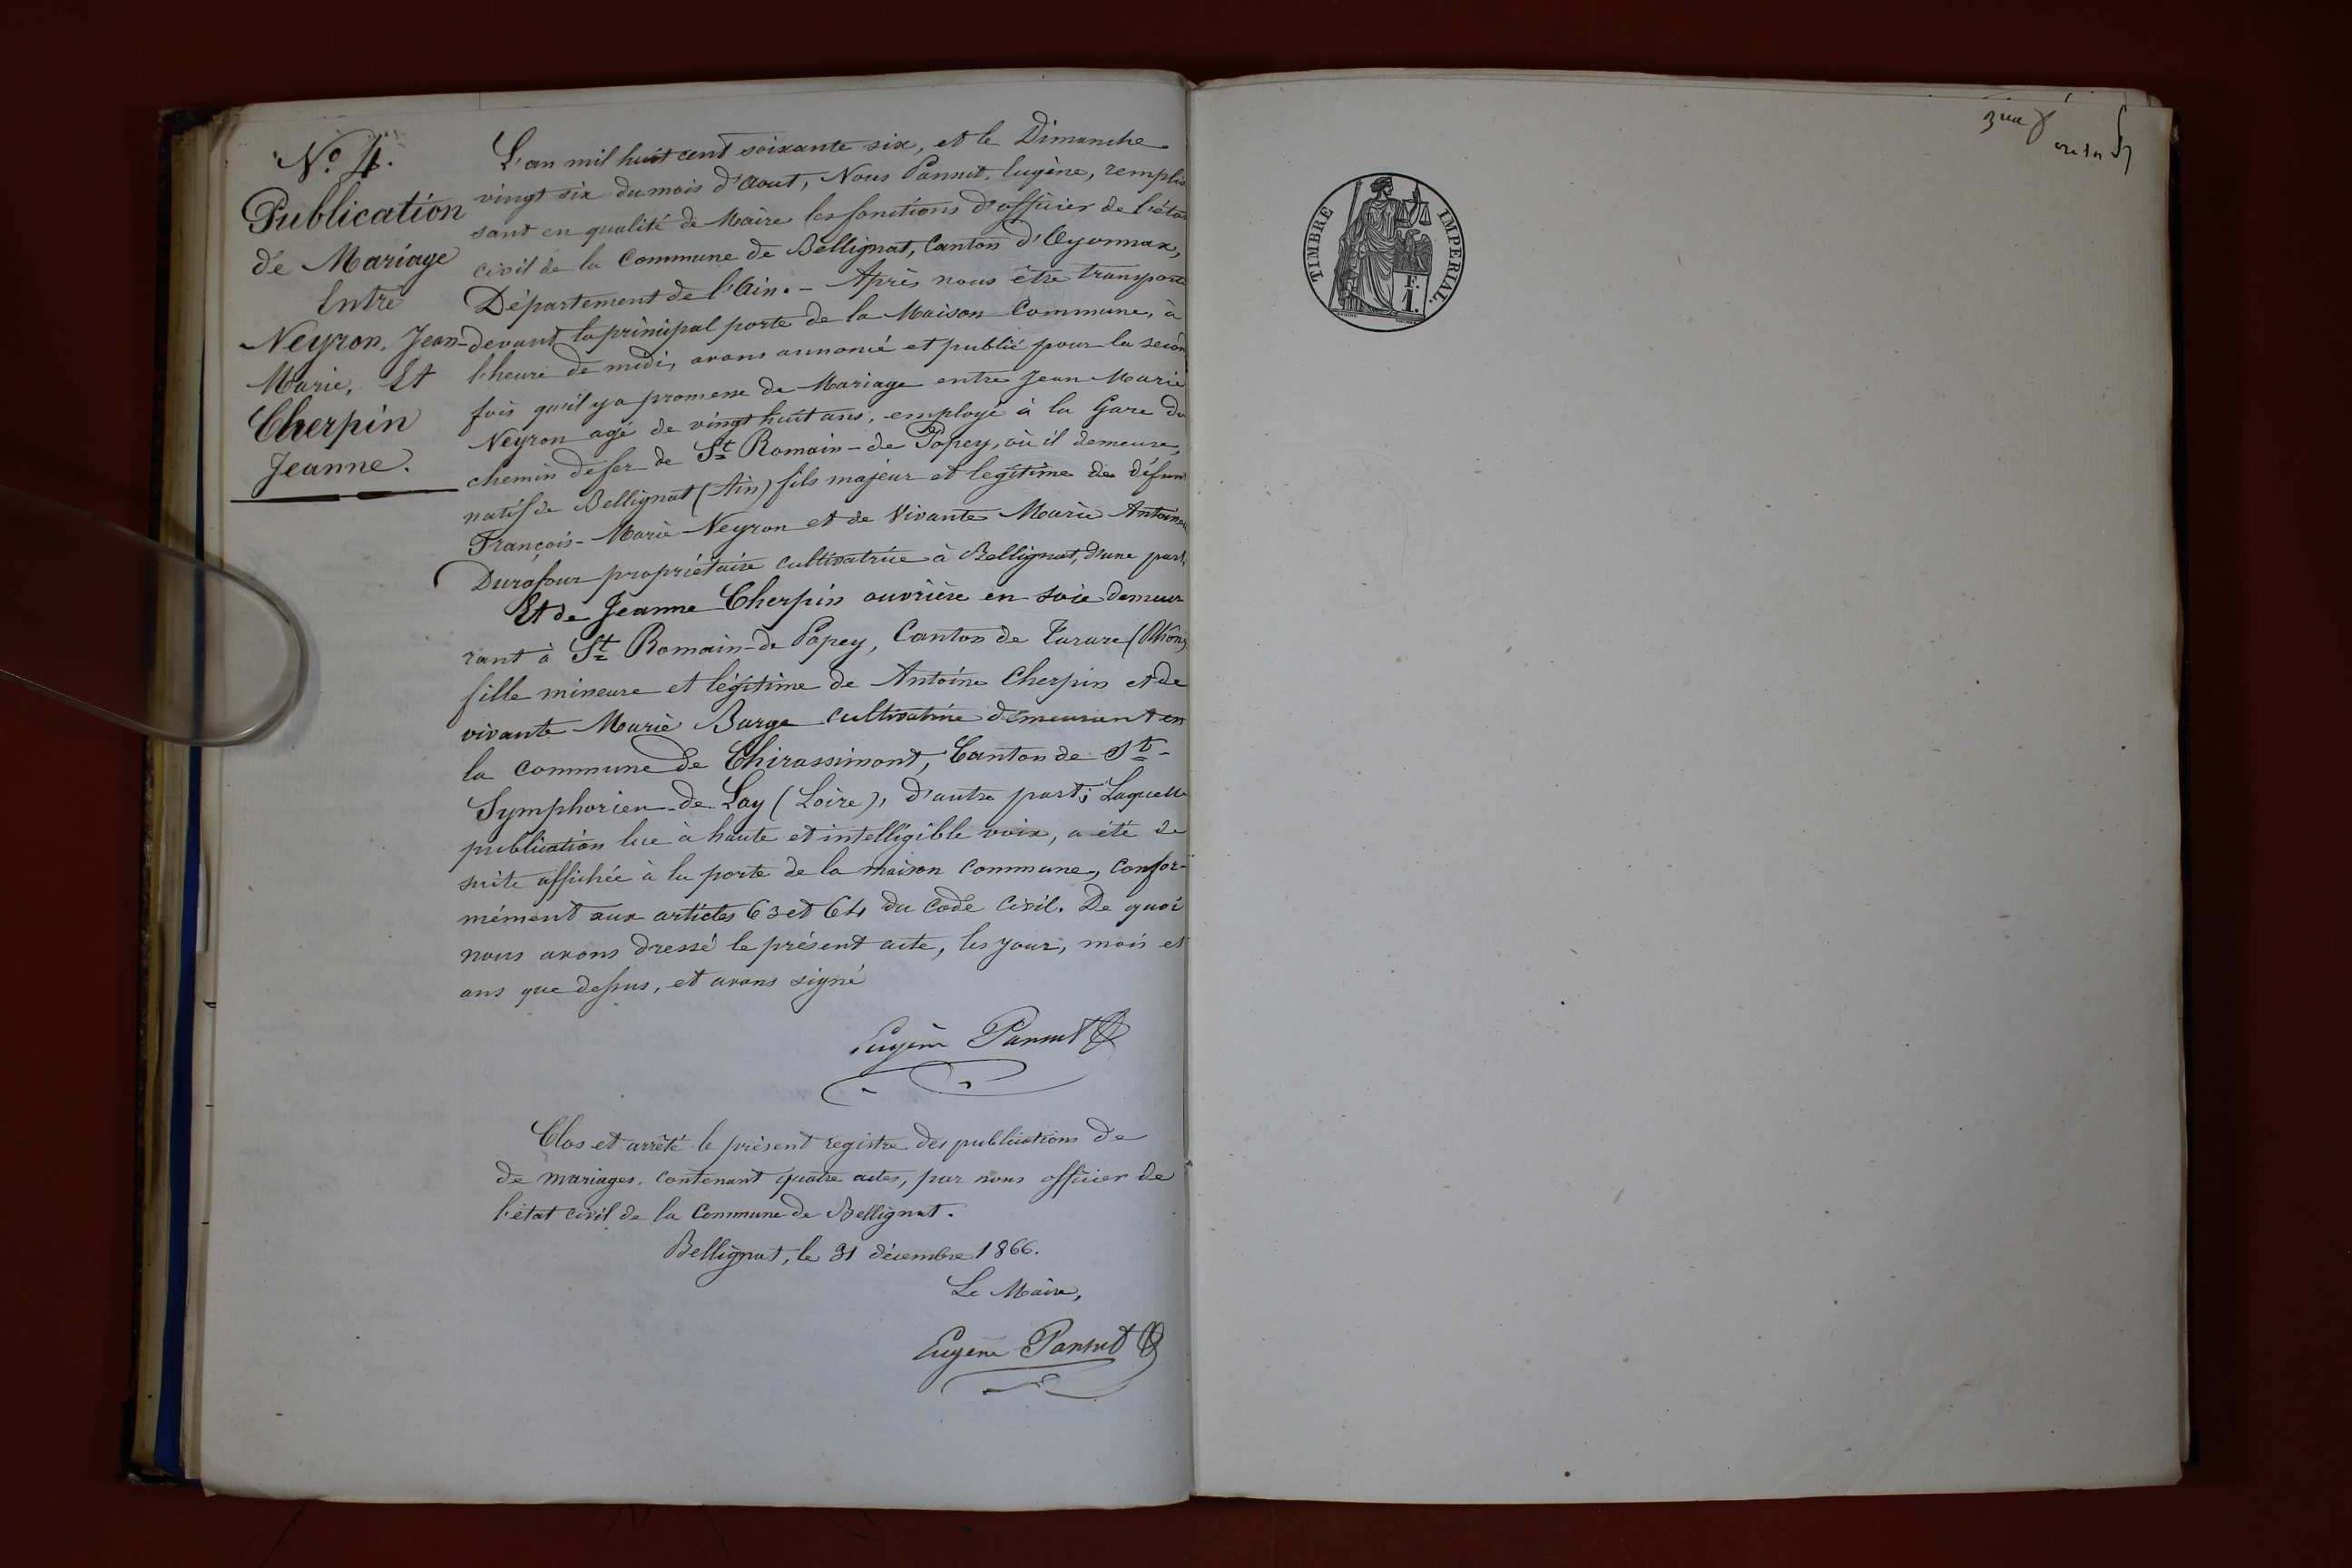 No. 4.
Publication
de Mariage
Entre
Neyron, Jean-
Marie, Et
Cherpin
Jeanne.
L'an mil huit cent soixante six, et le Dimanche
vingt six du mois d'Aout, Nous Pansut, Eugène, remplis
sant en qualité de Maire les fonctions d'officier de l'état
civil de la Commune de Bellignat, Canton d'Oyonnax,
Département de l'Ain. - Après nous être transporté
devant la principal porte de la Maison Commune, à
l'heure de midi, avons annoncé et publié pour la second
fois qu'il y a promesse de Mariage entre Jean Marie
Neyron agé de vingt huit ans, employé à la Gare du
chemin de fer de St Romain-de Popey, où il demeure,
natif de Bellignat (Ain) fils majeur et legitime de défunt
François-Marie Neyron et de Vivante Marie Antoinet
Durafour propriétaire cultivatrice à Bellignat, d'une part.
Et de Jeanne Cherpin ouvrière en soie demeu
rant à St Romain-de Popey, Canton de Tarare (Rhône)
fille mineure et légitime de Antoine Cherpin et de
vivante Marie Barge cultivatrice demeurant en
la commune de Chirassimont, Canton de St-
Symphorien-de Lay (Loire), d'autre part; Laquelle
publication lue à haute et intelligible voix, a été de
suite affichée à la porte de la maison commune, confor-
mément aux articles 63 et 64 du Code Civil. De quoi
nous avons dressé le présent acte, les jour, mois et
ans que dessus, et avons signé
Eugène Pansut
Clos et arrêté le présent registre des publications de
de mariages, contenant quatre actes, par nous officier de
l'état civil de la Commune de Bellignat.
Bellignat, le 31 décembre 1866.
Le Maire,
Eugène Pansut
TIMBRE IMPERIAL.
F.
1.